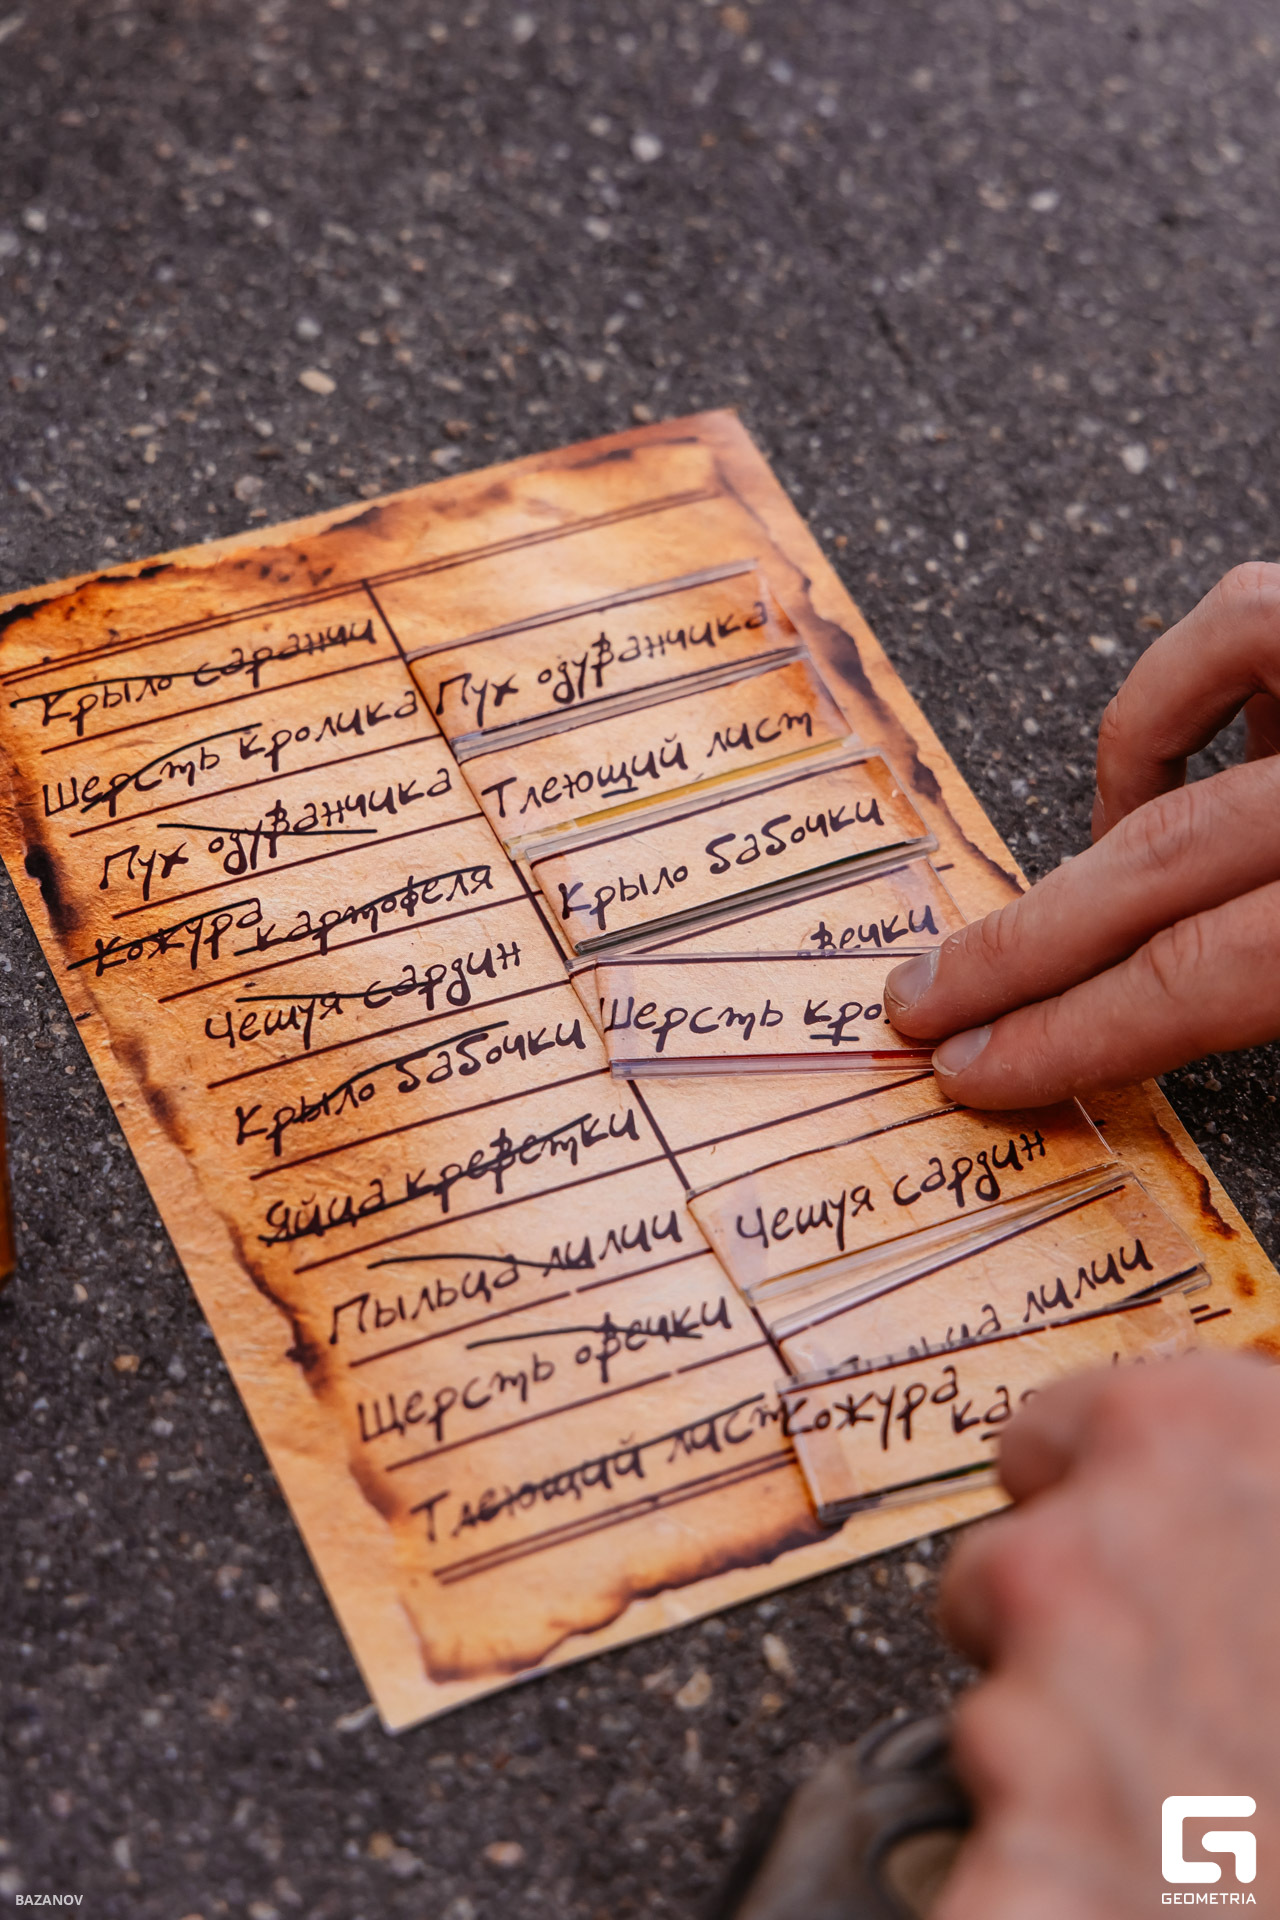 Крыло саранчи
Шерсть кролика
Пух одуванчика
Кожура картофеля
Чешуя сардин
Крыло бабочки
Яйца креветки
Пыльца лилии
Шерсть овечки
Тлеющий лист
Пух одуванчика
Тлеющий лист
Крыло бабочки
вечки
Шерсть кро
Чешуя сардин
лилии
Кожура ка
BAZANOV
GEOMETRIA